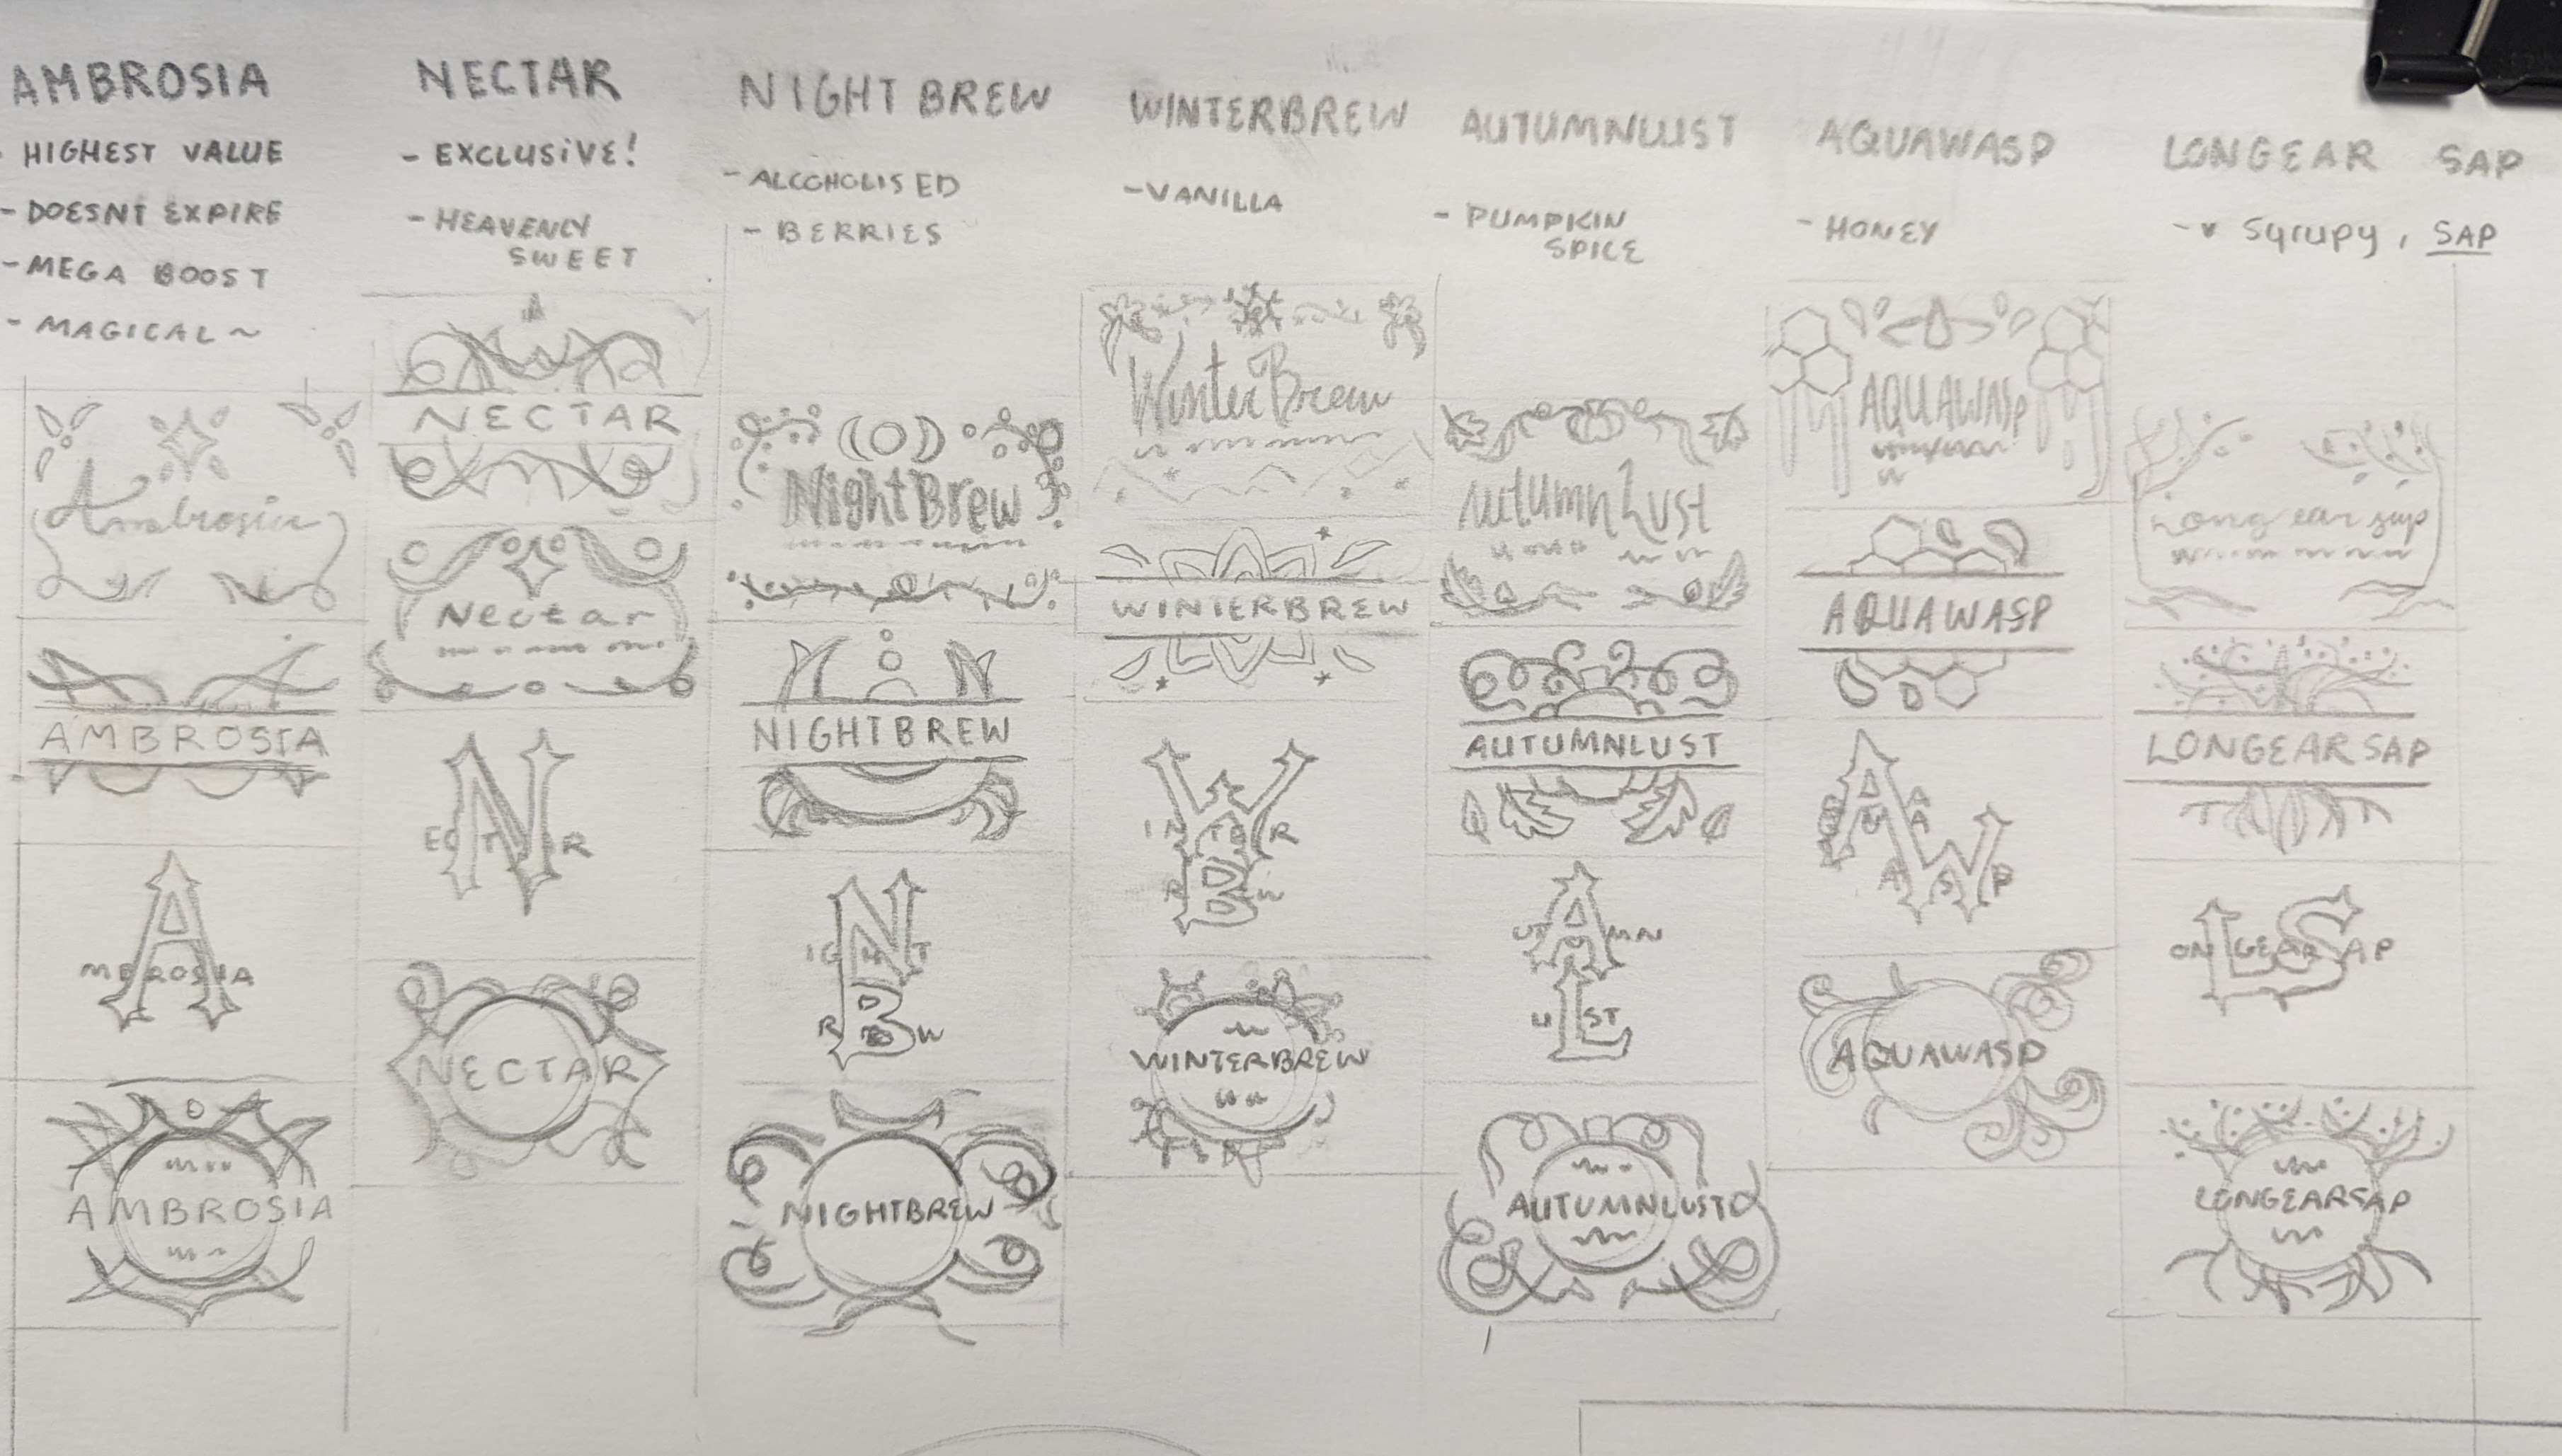 AMBROSIA
- HIGHEST VALUE
- DOESNT EXPIRE
- MEGA BOOST
- MAGICAL ~
Ambrosia
AMBROSIA
A
MBROSIA
AMBROSIA
NECTAR
- EXCLUSIVE!
- HEAVENLY
SWEET
NECTAR
Nectar
N
ECTAR
NECTAR
NIGHT BREW
- ALCOHOLISED
- BERRIES
NightBrew
NIGHTBREW
N
IGHT
B
R E W
NIGHTBREW
WINTERBREW
- VANILLA
WinterBrew
WINTERBREW
W
INTER
B
R E W
WINTERBREW
AUTUMNLUST
- PUMPKIN
SPICE
AutumnLust
AUTUMNLUST
A
UTUMN
L
U ST
AUTUMNLUST
AQUAWASP
- HONEY
AQUAWASP
AQUAWASP
A
QUA
W
ASP
AQUAWASP
LONGEAR SAP
- Syrupy, SAP
Longear sap
LONGEARSAP
LS
ONGEAR AP
LONGEARSAP